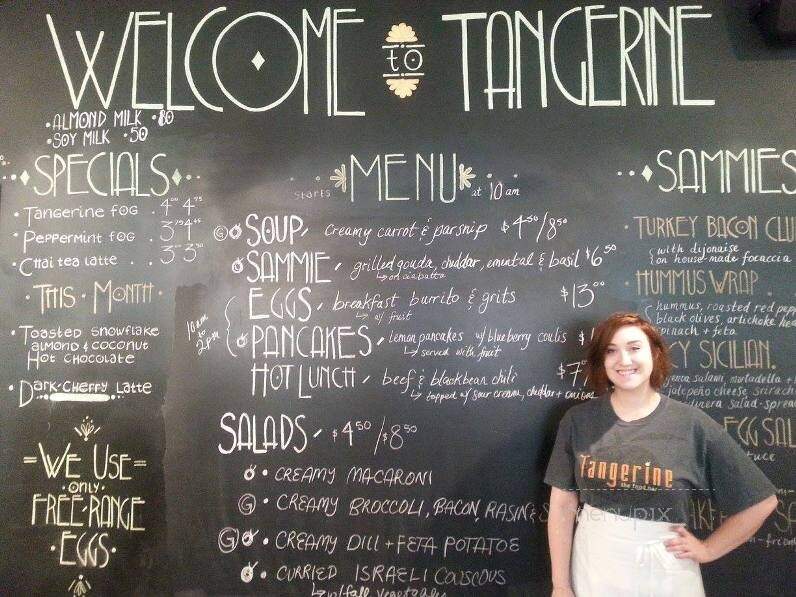 WELCOME to TANGERINE
• ALMOND MILK • 80
• SOY MILK • 50
SPECIALS
• Tangerine FOG . 4⁰⁰ 4⁷⁵
• Peppermint FOG . 3⁷⁵ 4⁴⁵
• Chai tea latte . 3⁰⁰ 3⁵⁰
THIS • MONTH
• Toasted Snowflake
almond & coconut
Hot Chocolate
• Dark-Cherry Latte
= WE USE =
• ONLY •
FREE-RANGE
• EGGS •
starts MENU at 10 am
G SOUP, creamy carrot & parsnip $4⁵⁰/8⁵⁰
SAMMIE, grilled gouda, cheddar, emental & basil $6⁵⁰
on ciabatta
10am to 2pm
EGGS, breakfast burrito & grits $13⁰⁰
w/ fruit
PANCAKES, lemon pancakes w/ blueberry coulis $
served with fruit
HOT LUNCH, beef & blackbean chili $7
topped w/ sour cream, cheddar + onions
SALADS, $4⁵⁰/8⁵⁰
• CREAMY MACARONI
G • CREAMY BROCCOLI, BACON, RASINS
G • CREAMY DILL + FETA POTATOE
• CURRIED ISRAELI COUSCOUS
w/ fall vegetables
• SAMMIES
• TURKEY BACON CLU
with dijonaise
on house-made focaccia
• HUMMUS WRAP
hummus, roasted red pep
black olives, artichoke hea
spinach + feta
CY SICILIAN.
salami, mortadella +
jalepeño cheese, srirach
salad-sprea
EGG SAL
tuce
Tangerine
the food bar
menupix